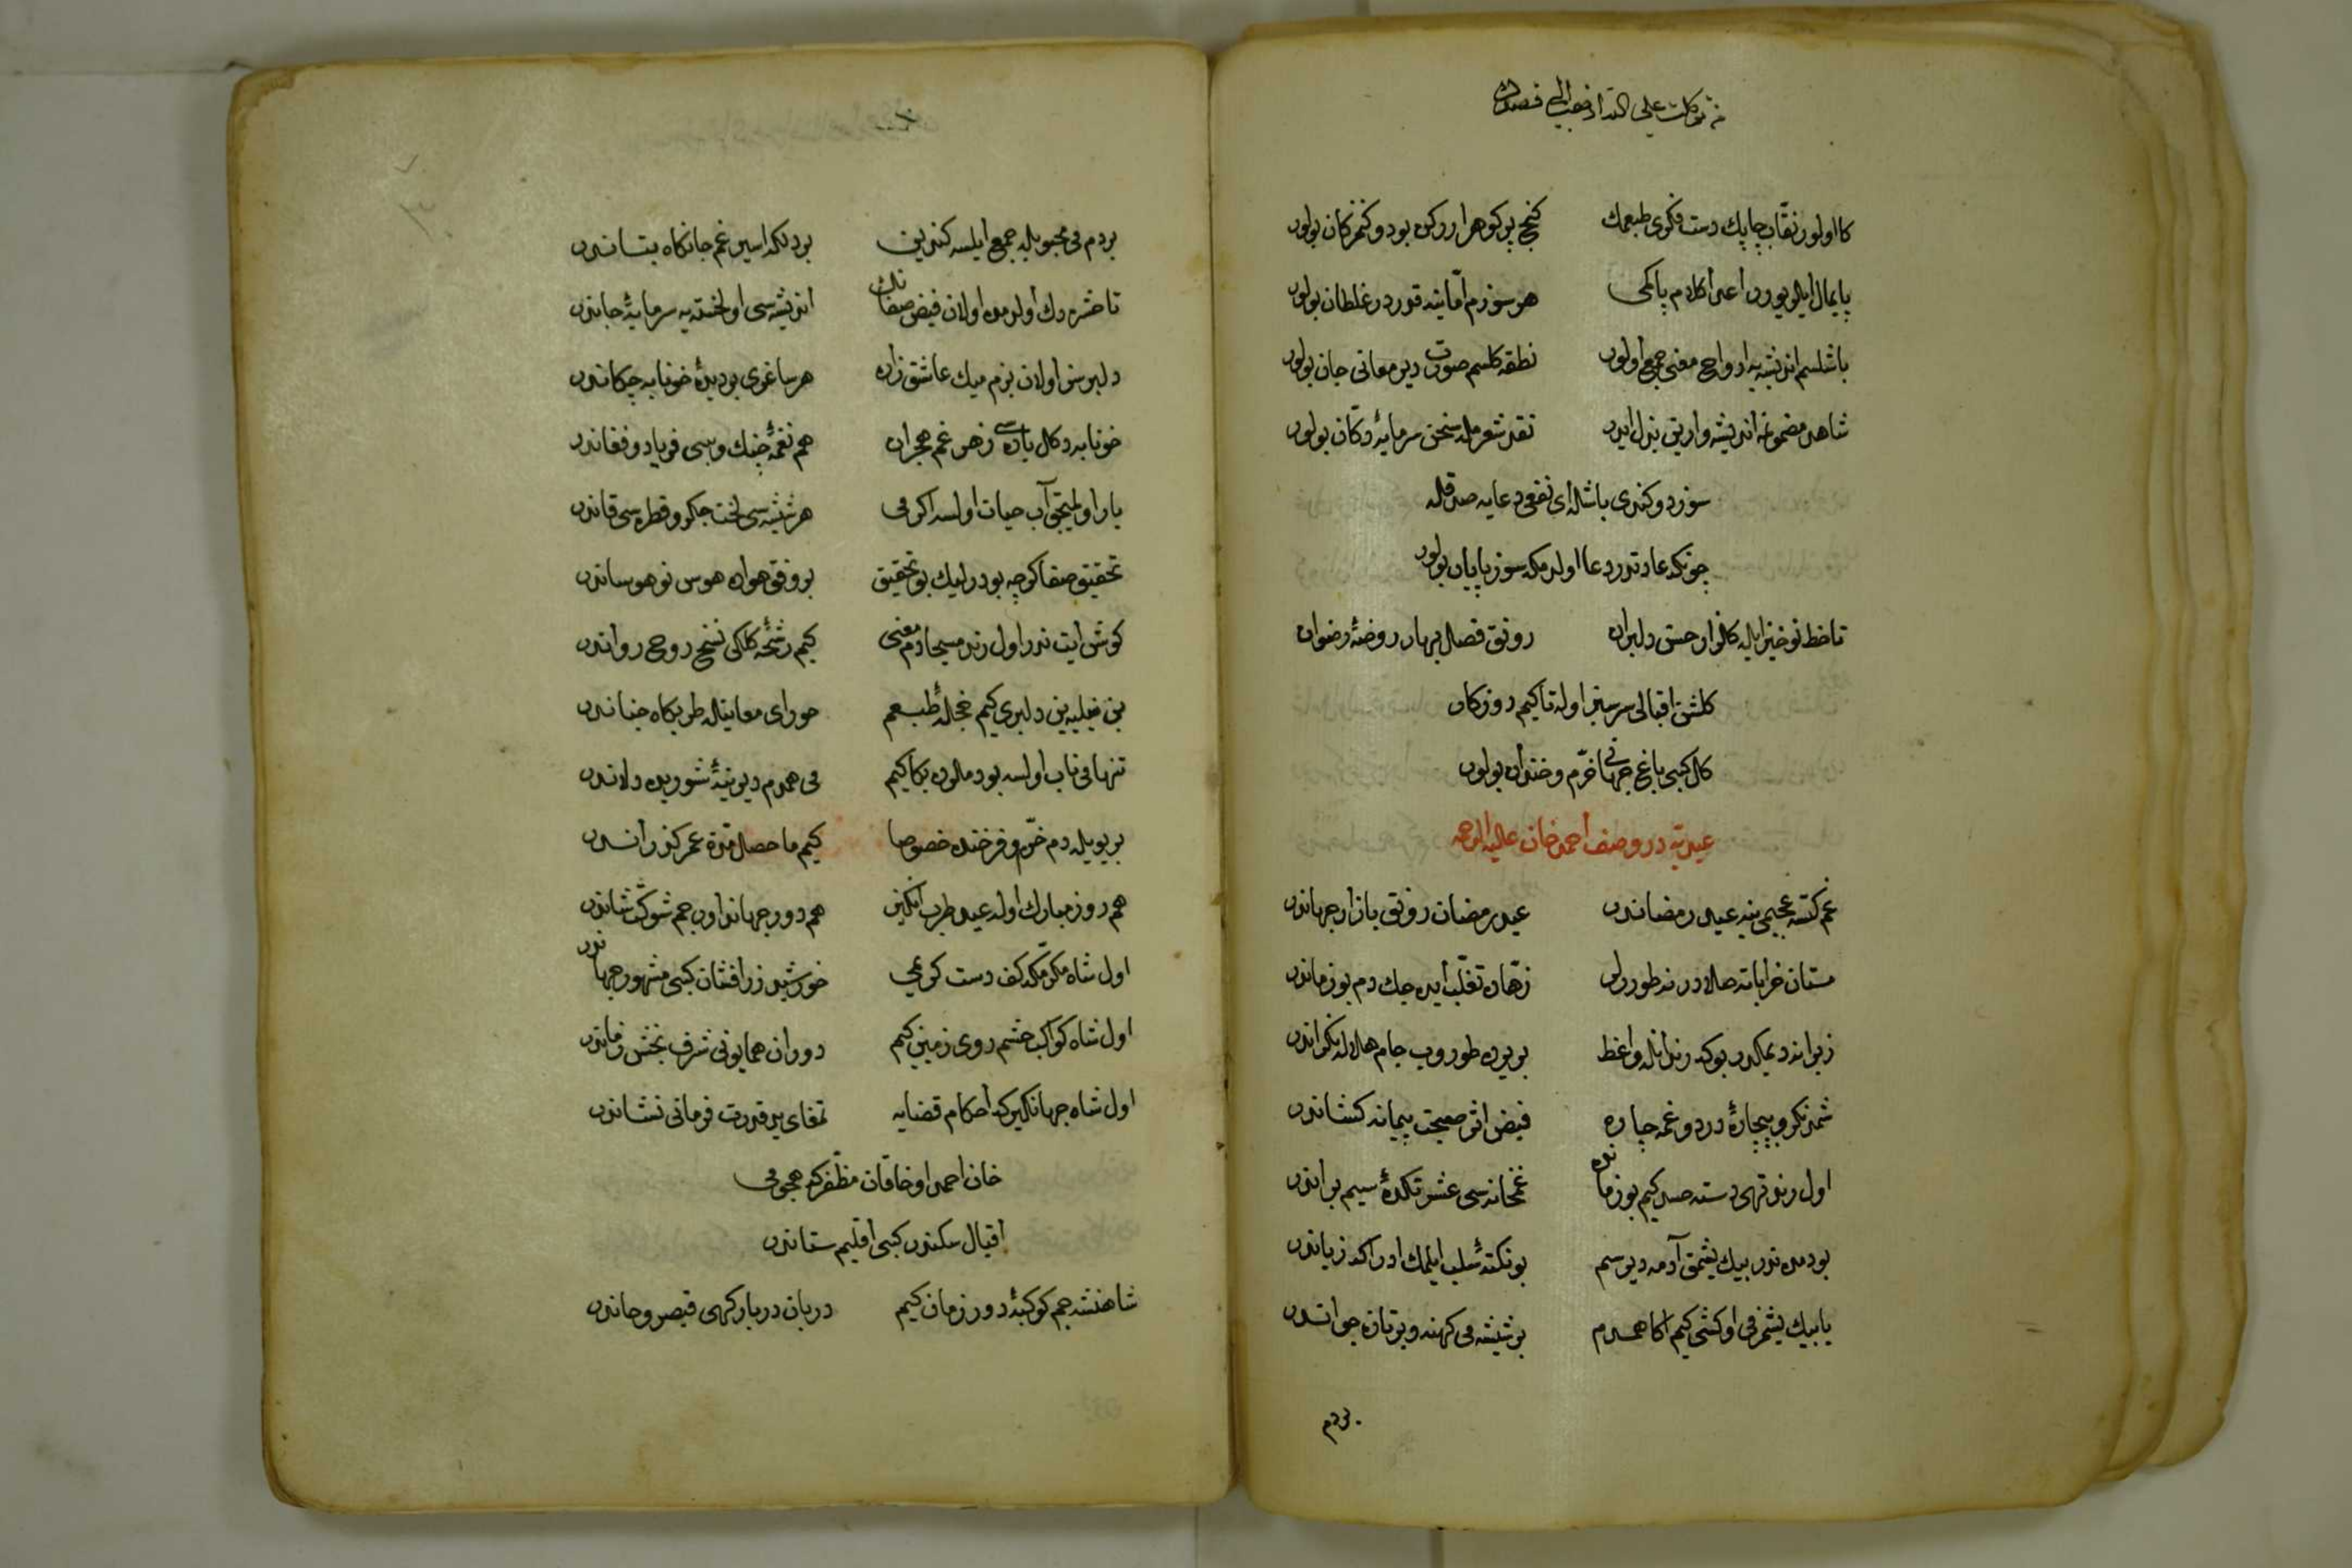 توكلت على الله
كا اولور نقّاب چاپك دست فكرى طبعمك كنج پر كوهر ارركن بودوكنز كان بولور
پايمال ايلر يوزن اعدا كلام پاكمى هر سوزم امّا ينه قدر در غلطان بولور
باشلسم انديشه يه ارواح معنى جمع اولور نطقه كلسم صورت ديو معانى جان بولور
شاهد مضمونه انديشه وارين بذل ايدر نقد شعرمله سخن سرمايۀ دكّان بولور
سوز دوكندى باشله اى نفعى دعايه صدقله
چونكه عادتدر دعا اولدمكه سوز پايان بولور
تا خط نوخيز ايله كلزار حسن دلبران رونق فصل بهار روضۀ رضوان بولور
كلشن اقبالى سرسبز اوله تا كيم روزكار
كل كبى باغ جهانى خرّم و خندان بولور
عيديّه در وصف أحمد خان عليه الرحمه
غم كتسه عجبمى ينه عيد رمضاندر عيد رمضان رونق بازار جهاندر
مستان خراباته صلادر نه طورورلر زهّاده تغلّب ايده جك دم بو زماندر
زيرا نه ديمكدر بو كه رندانله واعظ بر يرده طوروب جام هلاله نكراندر
شمدنكرو بيچارۀ درد و غمه چاره فيض اثر صحبت پيمانه كشاندر
اول رند تهى دسته حسد كيم بو زمانده غمخانه سى عشرتكدۀ سيم براندر
بو دمده ندر بيك يشمق آدمه ديرسم بو نكته سلب ايلمك ادراكه زياندر
يا بيك يشمزمى او كشى كيم اكا همدم بر شيشه مى كهنه و بر تازه جواندر
بردم
بردم مى محبوبله جمع ايلسه كندين بردلكه اسير غم جانكاه بتاندر
تا حشره دك اولدمده اولان فيض صفانك انديشه سى او لخته يه سرمايۀ جاندر
دلبرسز اولان بزم ميك عاشق زاره هر ساغرى بر ديدۀ خونابه چكاندر
خونابه دكل باده سى زهر غم هجران هم نغمۀ چنك و نيى فرياد و فغاندر
يار اولميجق آب حيات اولسه اكر مى هر شيشه سى لخت جكر و قطره سى قاندر
تحقيق صفا كرچه بودر ليك بو تحقيق بر وفق هواده هوس نو هوساندر
كوش ايت ندر اول رند مسيحا دم معنى كيم رشحۀ كلكى نسخ روح رواندر
بن نيليه يين دلبرى كيم حجلۀ طبعم حوراى معانيله طربكاه جناندر
تنها مى ناب اولسه بو دملرده بكا كيم مى همدم ديرينۀ شوريده دلاندر
بر بويله دم خرّم و فرخنده خصوصا كيم ما حصل مدّة عمر كذراندر
هم روز مبارك اوله عيد طرب انكيز هم دور جهانداور جم شوكت شاندر
اول شاه مكرّمكه كف دست كريمى خورشيد زر افشان كبى مشهور جهاندر
اول شاه كواكب حشم روى زمين كيم دوران همايونى شرف بخش زماندر
اول شاه جهانكير كه أحكام قضايه تمغاى يد قدرت فرمانى نشاندر
خان احمد او خاقان مظفّر كه هجومى
اقبال سكندر كبى اقليم ستاندر
شاهنشه جم كوكبۀ دور زمان كيم دربان در باركهى قيصر و خاندر